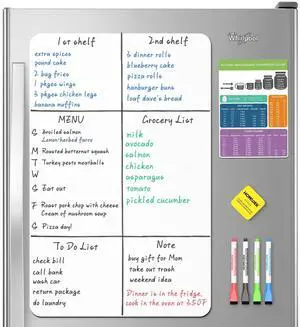 1st shelf
extra spices
pound cake
2 bag fries
1 pkges wings
3 pkges chicken legs
banana muffins
2nd shelf
3 dinner rolls
blueberry cake
pizza rolls
hamburger buns
loaf dave's bread
MENU
S broiled salmon
Lemon/herbed farro
M Roasted butternut squash
T Turkey pesto meatballs
W
G Eat out
F Roast pork chop with cheese
Cream of mushroom soup
S Pizza day!
Grocery List
milk
avocado
salmon
chicken
asparagus
tomato
pickled cucumber
To Do List
check bill
call bank
wash car
return package
do laundry
Note
buy gift for Mom
take out trash
weekend idea
Dinner is in the fridge,
cook in the oven at 450F
Whirlpool